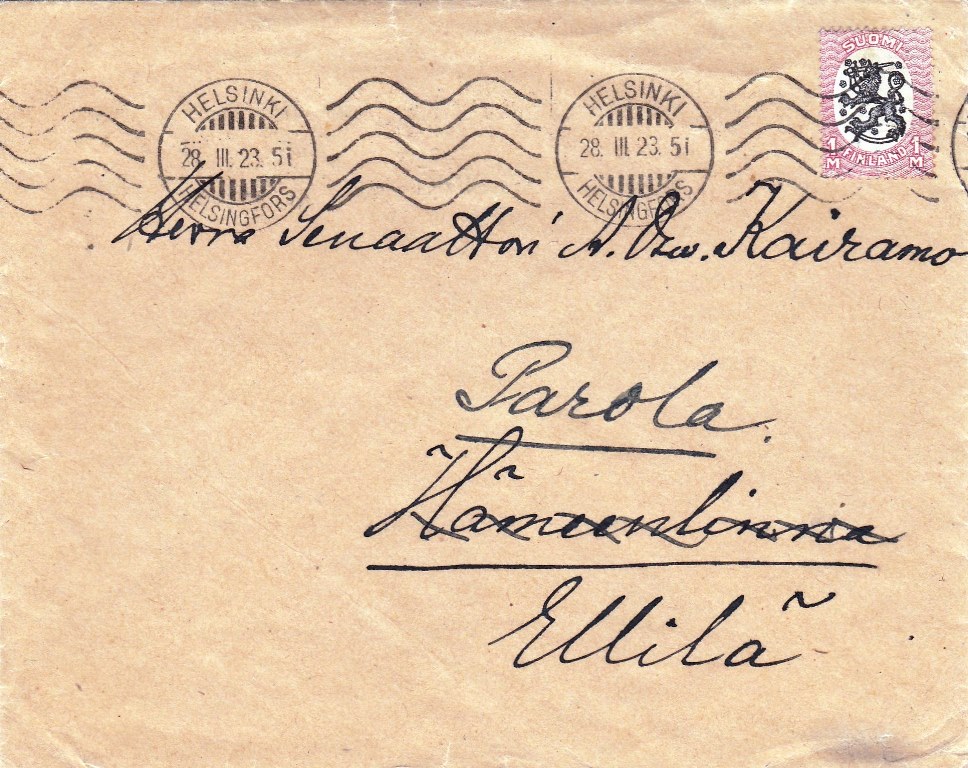 SUOMI
1 M FINLAND 1 M
HELSINKI
28. III. 23. 5i
HELSINGFORS
HELSINKI
28. III. 23. 5i
HELSINGFORS
Herra Senaattori A. Osw. Kairamo
Parola.
Hämeenlinna
Ellilä